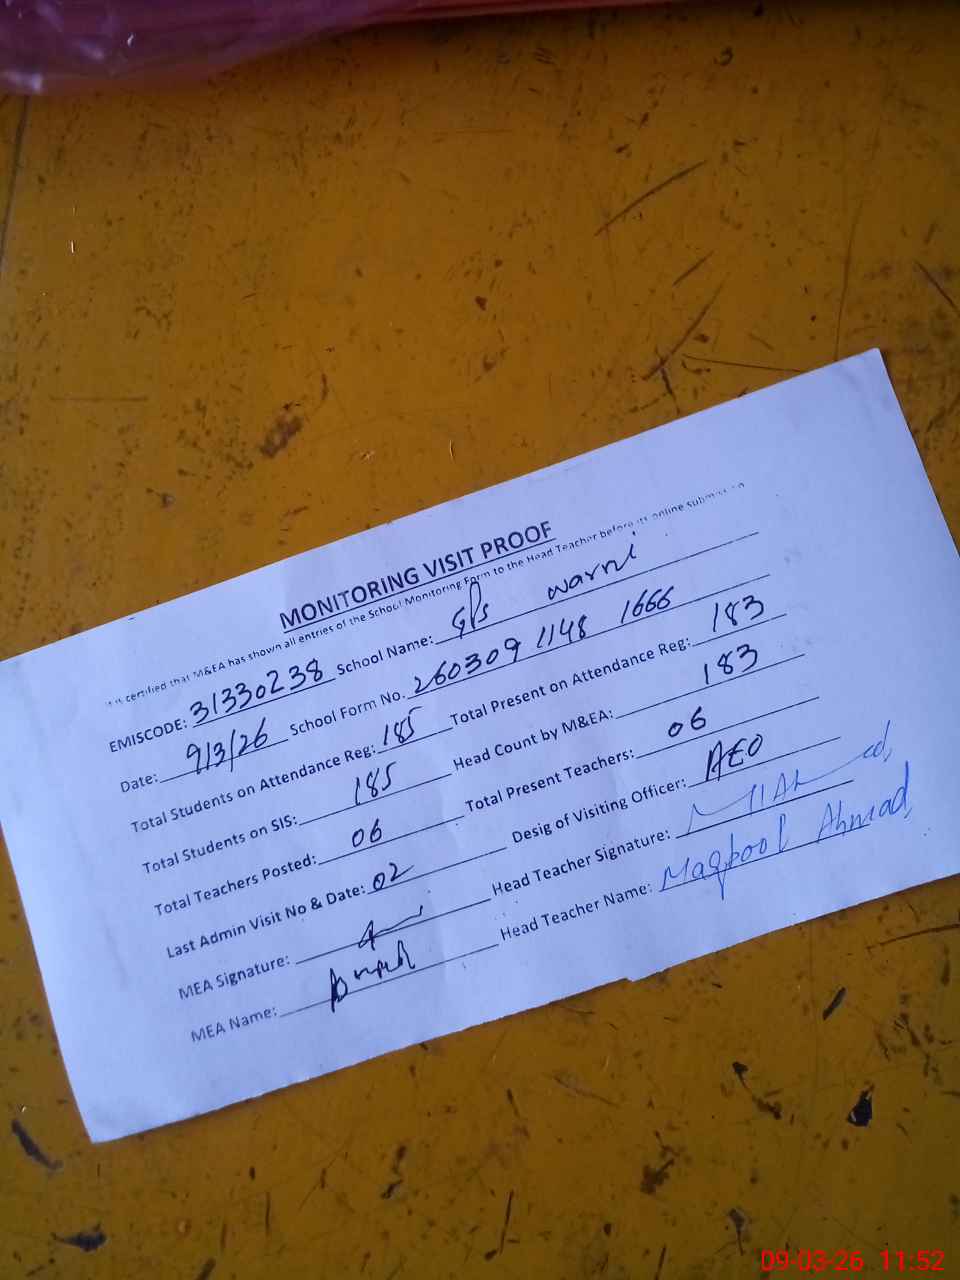 MONITORING VISIT PROOF
It is certified that M&EA has shown all entries of the School Monitoring Form to the Head Teacher before its online submission
EMISCODE: 31330238 School Name: GPS warni
Date: 9/3/26 School Form No. 260309 1148 1666
Total Students on Attendance Reg: 185 Total Present on Attendance Reg: 183
Total Students on SIS: 185 Head Count by M&EA: 183
Total Teachers Posted: 06 Total Present Teachers: 06
Last Admin Visit No & Date: 02 Desig of Visiting Officer: AEO
MEA Signature: Head Teacher Signature:
MEA Name: Head Teacher Name: Maqbool Ahmad
09-03-26 11:52